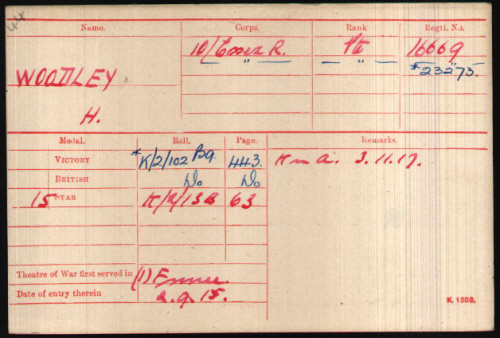 Name. Corps. Rank Regtl. No.
10/Essex R. Pte 16669
" " " *23275.
WOODLEY
H.
Medal. Roll. Page. Remarks.
VICTORY *K/2/102 B9. 443. K in A. 3.11.17.
BRITISH Do Do
15 STAR K/2/13B 63
Theatre of War first served in (1) France
Date of entry therein 2.9.15.
K. 1380.